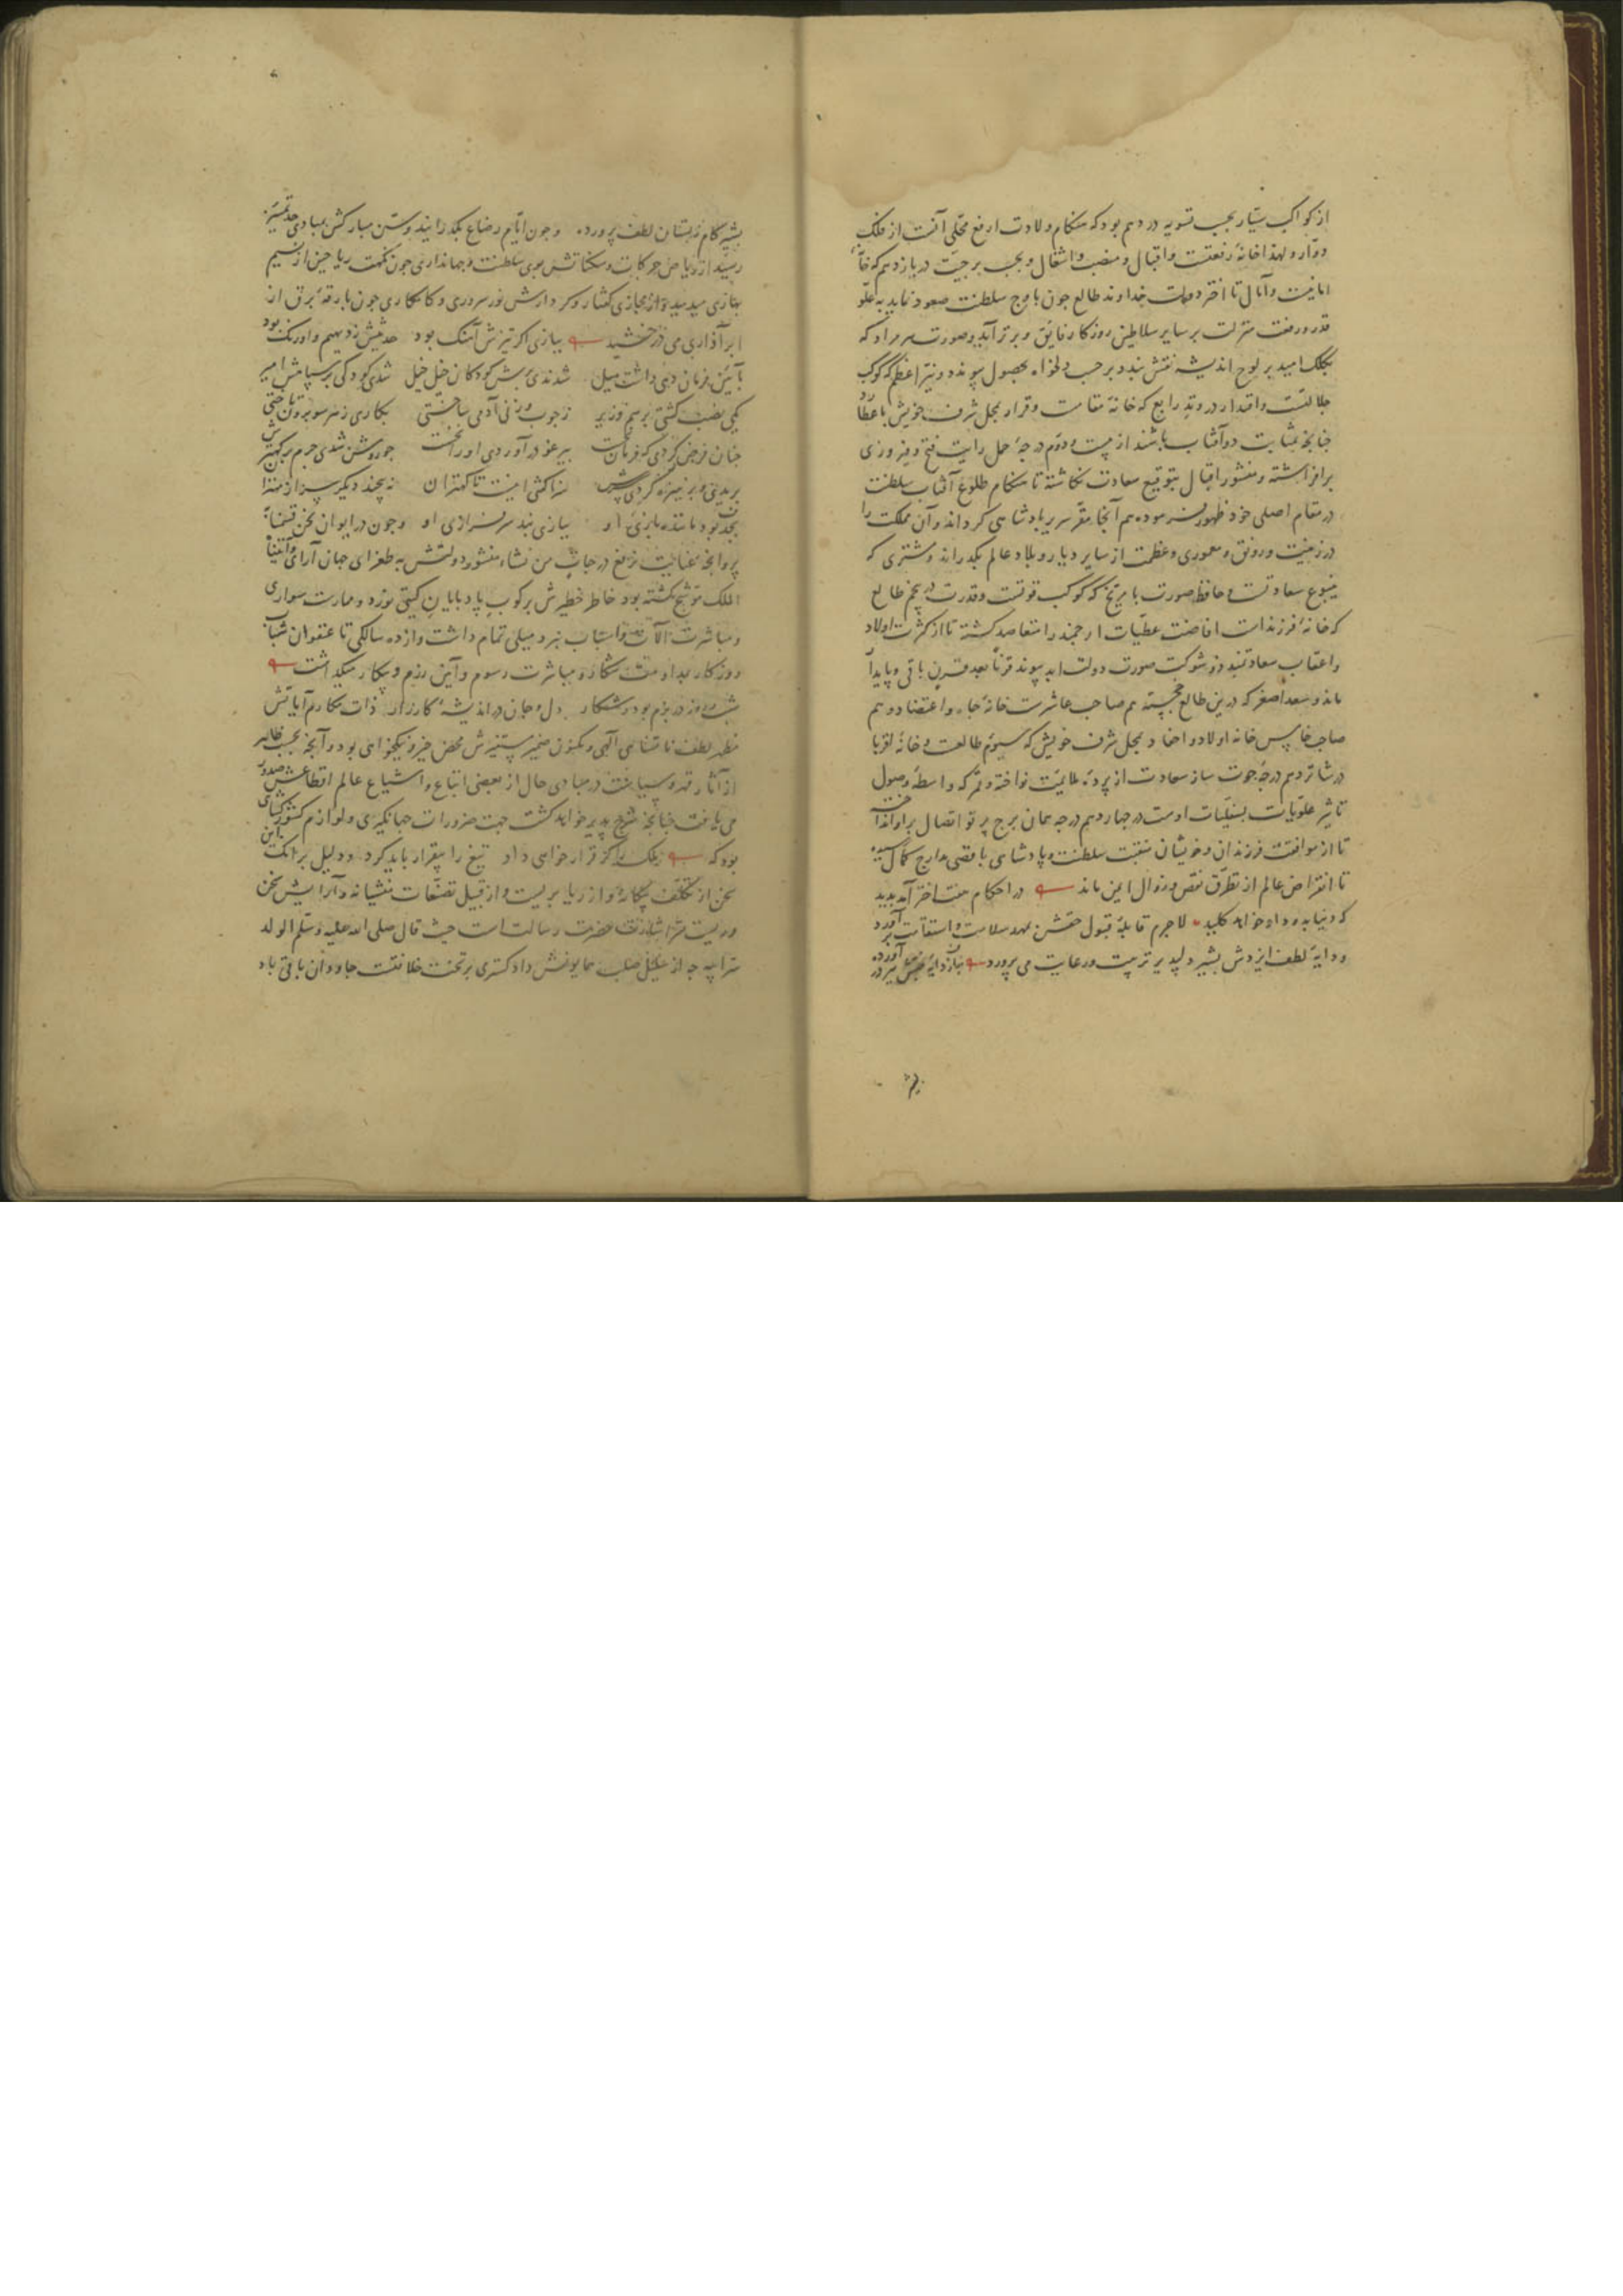 از کواکب سیّار بحسب تسویه در دهم بود که هنکام ولادت ارفع محلّی آنست از فلک
دوّار و لهذا خانهٔ رفعتست و اقبال و منصب و اشغال و بحسب برجیّت در یازدهم که خانهٔ
امانیست و آمال تا اختر دولت خداوند طالع جون باوج سلطنت صعود نماید به علوّ
قدر و رفعت منزلت بر سایر سلاطین روزکار فایق و برتر آید و صورت هر مراد که
بکلک امید بر لوح اندیشه نقش بندد بر حسب دلخواه بحصول پیوندد و نیّر اعظم که کوکب
جلالتست و اقتدار در وتد رابع که خانهٔ مقامت و قرار بمحل شرف خویش با عطارد
جنانجه بمثابت دو آفتاب باشند از بیست و دوّم درجهٔ حمل رایت فتح و فیروزی
برافراشته و منشور اقبال بتوقیع سعادت نکاشته تا هنکام طلوع آفتاب سلطنت
در مقام اصلی خود ظهور فرموده هم آنجا مقرّ سریر پادشاهی کرداند و آن مملکت را
در زینت و رونق و معموری و عظمت از سایر دیار و بلاد عالم بکذراند و مشتری که
ینبوع سعادتست و حافظ صورت با مریخ که کوکب قوتست و قدرت در پنجم طالع
که خانهٔ فرزند است افاضت عطیّات ارجمند را متعاضد کشته تا از کثرت اولاد
و اعقاب سعادتمند ذو شوکت صورت دولت ابد پیوند قرناً بعد قرن باقی و پایدار
ماند و سعد اصغر که درین طالع خجسته هم صاحب عاشرست خانهٔ جاه و اعتضاد و هم
صاحب خامس خانه اولاد و احفاد بمحل شرف خویش که سیوم طالعست و خانهٔ اقربا
در شانزدهم درجهٔ حوت ساز سعادت از پردهٔ ملایمت نواخته و قمر که واسطهٔ وصول
تاثیر علویّات بسفلیّات اوست در جهاردهم درجه همان برج پرتو اتصال بر او انداخته
تا از موافقت فرزندان و خویشان منقبت سلطنت و پادشاهی باقصی مدارج کمال رسیده
تا انقراض عالم از تطرّق نقص و زوال ایمن ماند در احکام هفت اختر آمد پدید
که دنیا بدو داد خواهد کلید لاجرم قابلهٔ قبول حقّش بمهد سلامت و استقامت برآورد
و دایهٔ لطف ایزدش بشیر دلپذیر تربیت و رعایت می پرورد
بشیر
بشیر کام ز پستان لطف پرورده و جون ایّام رضاع بکذرانید و سنّ مبارکش بمبادی حدّ تمییز
رسید از ریاض حرکات و سکناتش بوی سلطنت و جهانداری جون نکهت ریاحین از نسیم
بهاری میدمید و از مجاری کفتار و کردارش نور سروری و کامکاری جون بارقهٔ برق از
ابر آذاری می درخشید ببازی اکر تیزش آهنک بود حدیثش ز دیهیم و اورنک بود
بآیین فرمان دهی داشت میل شدندی برش کودکان خیل خیل شدی کودکی بر سپاهش امیر
یکی نصب کشتی برسم وزیر ز جوب و زنی آدمی ساختی بکاری ز هر سو
جنان فرض کردی که فرمان بیرغو در آوردی او را جو روشن شدی جرم
بریدی و بر نیزه کردی سرش سزا کش اینست تا کهتران نه بیجند دیکر سر از مهتران
بجد بود ماننده بازیّ او ببازی نبد سرفرازی او و جون در ایوان نحن قسمنا
پروانجهٔ عنایت نرفع درجات من نشاء منشور دولتش به طغرای جهان آرای و آتیناه
الملک موشّح کشته بود خاطر خطیرش برکوب باد پایان کیتی نورد و ممارست سواری
و مباشرت آلات و اسباب نبرد میلی تمام داشت و از ده سالکی تا عنفوان شباب
روزکار بمداومت شکار و مباشرت رسوم و آیین رزم و پیکار میکذاشت
شب و روز در بزم بود و شکار دل و جان در اندیشهٔ کارزار ذات مکارم آیاتش
مظهر لطف نامتناهی الهی و مکنون ضمیر مستنیرش محض خیر و نیکخواهی بود و آنجه بحسب ظاهر
از آثار قهر و سیاست در مبادی حال از بعضی اتباع و اشیاع عالم اقطاعش صدور
می یافت جنانجه شرح پذیر خواهد کشت جهت ضرورات جهانکیری و لوازم کشورکشایی
بود که ملک را کر قرار خواهی داد تیغ را بیقرار باید کرد و دلیل بر آنک این
سخن از تکلّف بیکانه و از ریا بریست و از قبیل تصنّعات منشیانه و آرایش سخن
وریست حضرت رسالت است حیث قال صلی الله علیه وسلّم الولد
سرّ ابیه جه از صلب همایونش دادکستری بر تخت خلافتست جاودان باقی باد